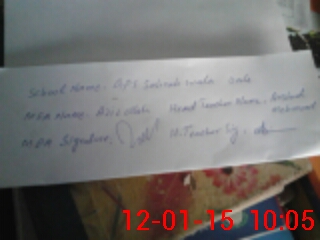 School Name. GPS
MEA Name. Azizullah Head Teacher Name. Arshad
Mehmood
MEA Signature. H. Teacher Sig.
12-01-15 10:05